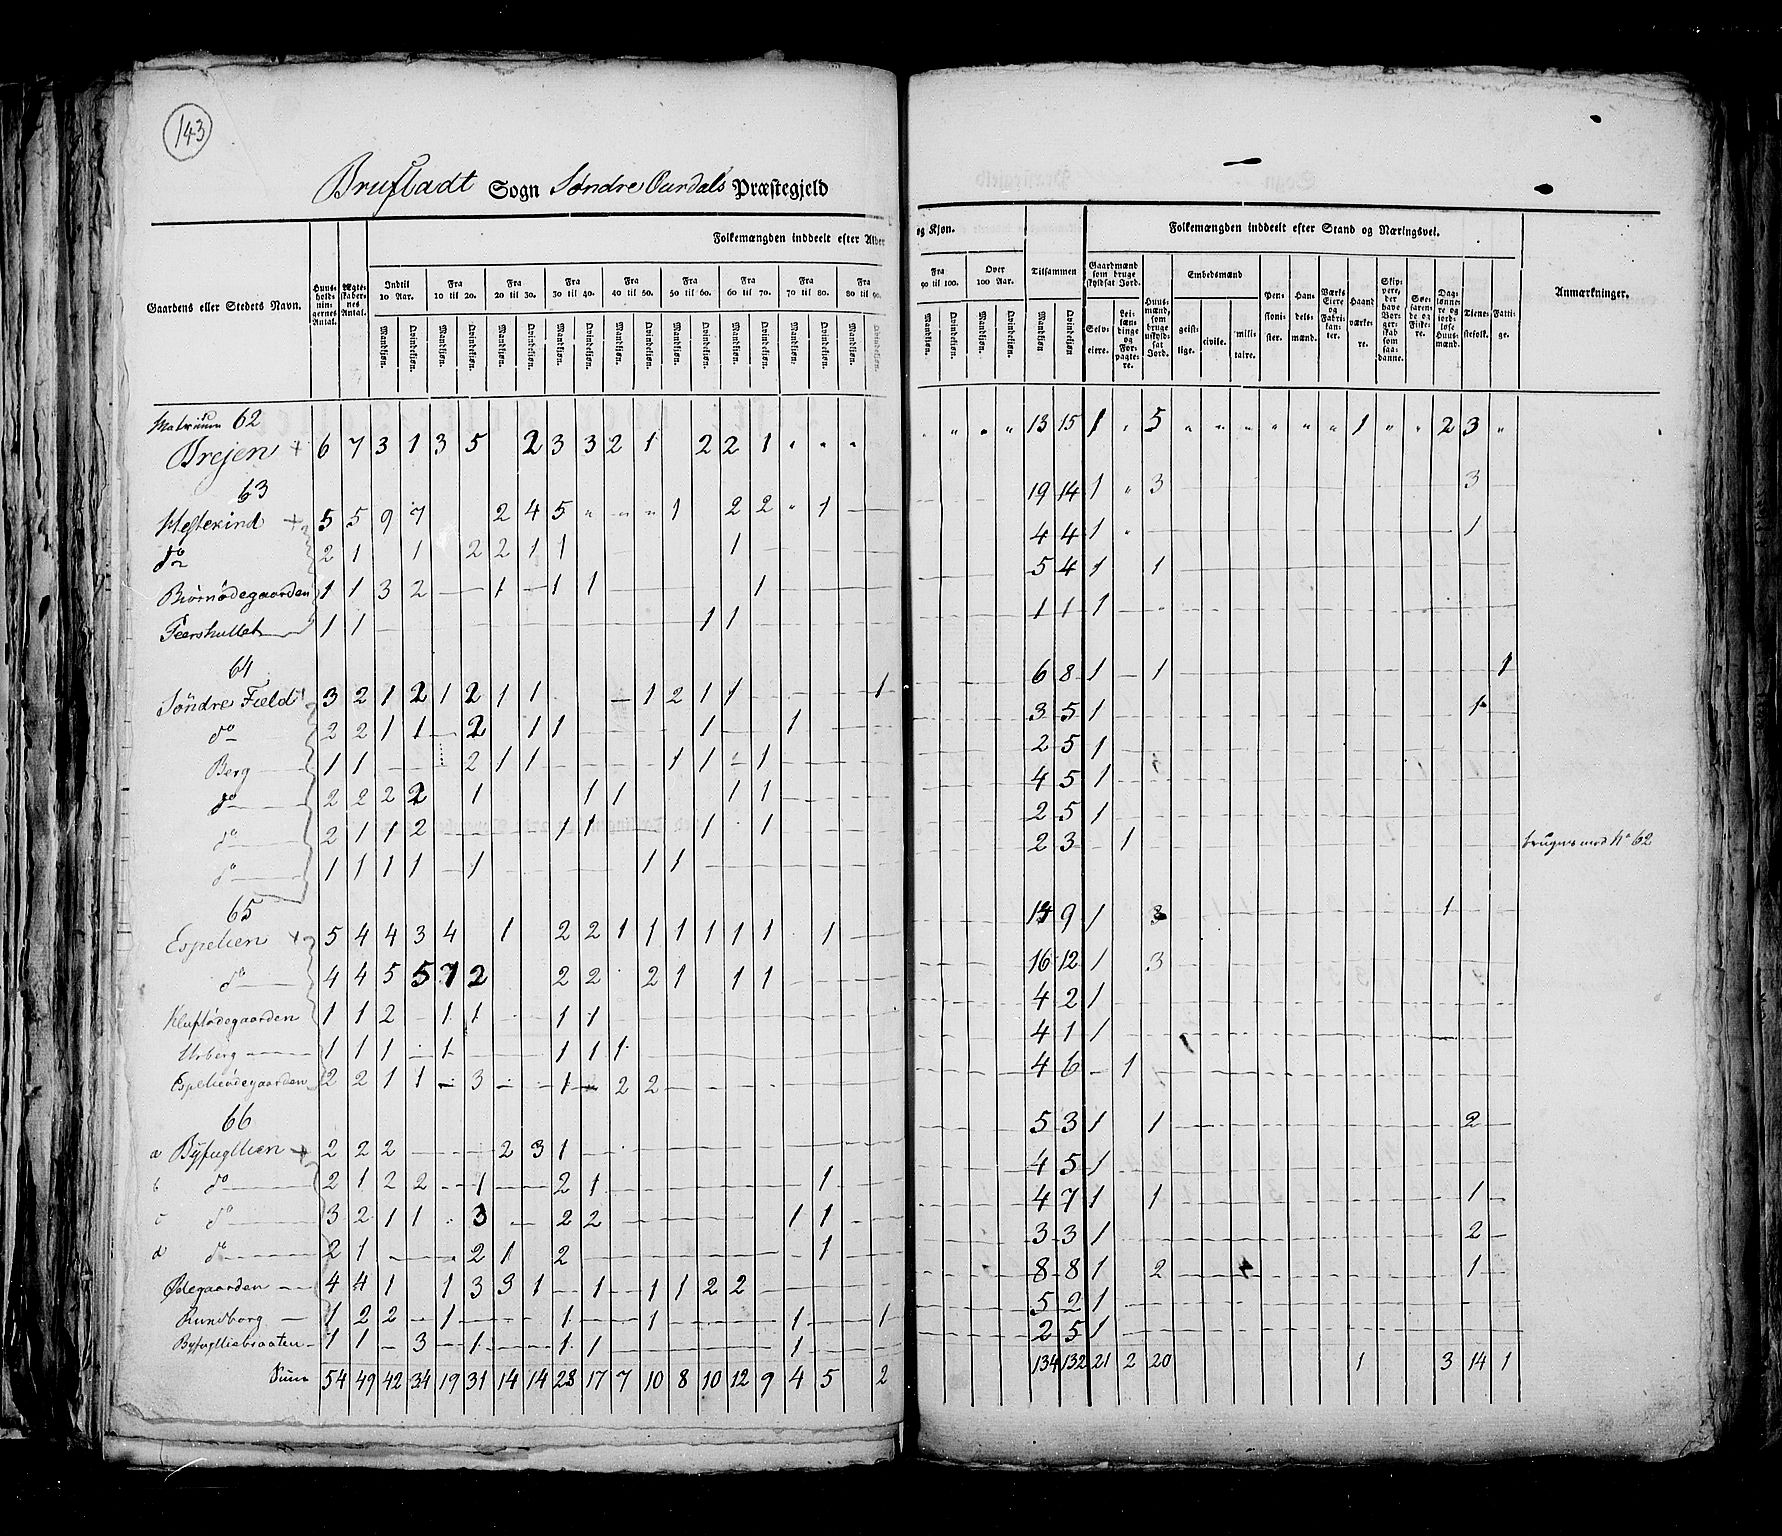 143
Brufladt Sogn Søndre Aurdals Præstegjeld
Folkemængden inddeelt efter Alder og Kjøn.
Folkemængden inddeelt efter Stand og Næringsvei.
Gaardens eller Stedets Navn.
Huusholdningernes Antal.
Ægteskabernes Antal.
Indtil 10 Aar.
Fra 10 til 20.
Fra 20 til 30.
Fra 30 til 40.
Fra 40 til 50.
Fra 50 til 60.
Fra 60 til 70.
Fra 70 til 80.
Fra 80 til 90.
Fra 90 til 100.
Over 100 Aar.
Tilsammen
Mandkjøn. Qvindekjøn.
Gaardmænd som bruge skyldsat Jord.
Selveiere.
Leilændinge og Forpagtere.
Huusmænd, som bruge uskyldsat Jord.
Embedsmænd
geistlige.
civile.
militaire.
Pensionister.
Handelsmænd.
Værks Eiere og Fabrikanter.
Haandværkere.
Skippere, der have Borgerskab som saadanne.
Søefarende og Fiskere.
Daglønnere og jordløse Huusmænd.
Tjenestefolk.
Fattige.
Anmærkninger.
62
Brejen 6 7 3 1 3 5 2 3 3 2 1 2 2 1 13 15 1 5 1 2 3
63
Hestekind 5 5 9 7 2 4 5 1 2 2 1 19 14 1 3 3
do 2 1 1 2 2 1 1 1 4 4 1 1
Biørnødegaarden 1 1 3 2 1 1 1 1 5 4 1 1
Feershullet 1 1 1 1 1 1 1
64
Søndre Fæld 3 2 1 2 1 2 1 1 1 2 1 1 1 6 8 1 1 1
do 2 2 1 1 2 1 1 1 1 3 5 1 1
Berg 1 1 2 1 1 1 1 1 2 5 1
do 2 2 2 2 1 1 1 1 1 4 5 1
do 2 1 1 2 1 1 1 1 2 5 1
do 1 1 1 1 1 1 1 2 3 1 bruges med No 62
65
Espelien 5 4 4 3 4 1 2 2 1 1 1 1 1 1 1 9 1 3 1
do 4 4 5 5 7 2 2 2 2 1 1 1 16 12 1 3
Kluftødegaarden 1 1 2 1 1 1 1 4 2 1
Urberg 1 1 1 1 1 1 1 4 1 1
Espelieødegaarden 2 2 1 1 3 1 2 2 4 6 1
66
a Byfugllien 2 2 2 2 3 1 5 3 1 1 2
b do 2 1 2 2 1 2 1 1 4 5 1
c do 3 2 1 1 3 2 2 1 1 4 7 1 1 1
d do 2 1 2 1 2 1 3 3 1 2
Ødegaarden 4 4 1 1 3 3 1 1 1 1 2 2 8 8 1 2 1
Rundborg 1 2 2 1 1 1 1 1 5 2 1
Byfuglliebraaten 1 1 3 1 1 1 1 2 5 1
Suma 54 49 42 34 19 31 14 14 28 17 7 10 8 10 12 9 4 5 2 134 132 21 2 20 1 3 14 1